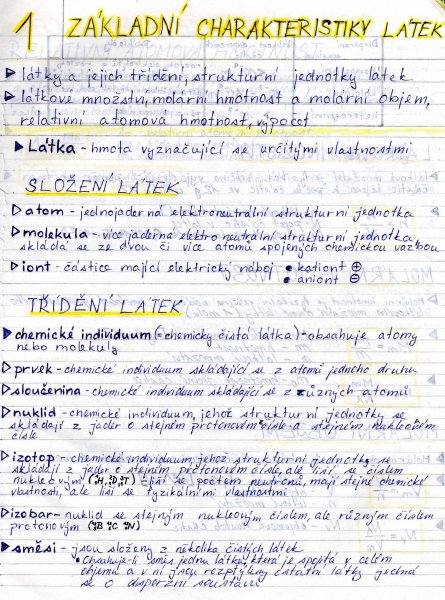 1 ZÁKLADNÍ CHARAKTERISTIKY LÁTEK
▷ látky a jejich třídění, strukturní jednotky látek
▷ látkové množství, molární hmotnost a molární objem,
relativní atomová hmotnost, výpočet
▶ Látka - hmota vyznačující se určitými vlastnostmi
SLOŽENÍ LÁTEK
▷ atom - jednojaderná elektroneutrální strukturní jednotka
▷ molekula - více jaderná elektroneutrální strukturní jednotka
skládá se ze dvou či více atomů spojených chemickou vazbou
▷ iont - částice mající elektrický náboj • kationt ⊕
• aniont ⊖
TŘÍDĚNÍ LÁTEK
▶ chemické individuum (=chemicky čistá látka) - obsahuje atomy
nebo molekuly
▷ prvek - chemické individuum skládající se z atomů jednoho druhu
▷ sloučenina - chemické individuum skládající se z různých atomů
▷ nuklid - chemické individuum, jehož strukturní jednotky se
skládají z jader o stejném protonovém čísle a stejném nukleovém
čísle
▷ izotop - chemické individuum, jehož strukturní jednotky se
skládají z jader o stejném protonovém čísle, ale liší se číslem
nukleovým - liší se počtem neutronů, mají stejné chemické
vlastnosti, ale liší se fyzikálními vlastnostmi
▷ izobar - nuklid se stejným nukleovým číslem, ale různým číslem
protonovým
▶ směsi - jsou složeny z několika čistých látek
• Obsahuje-li směs jednu látku, která je spojitá v celém
objemu a v ní jsou rozptýleny ostatní látky jedná
se o disperzní soustavu